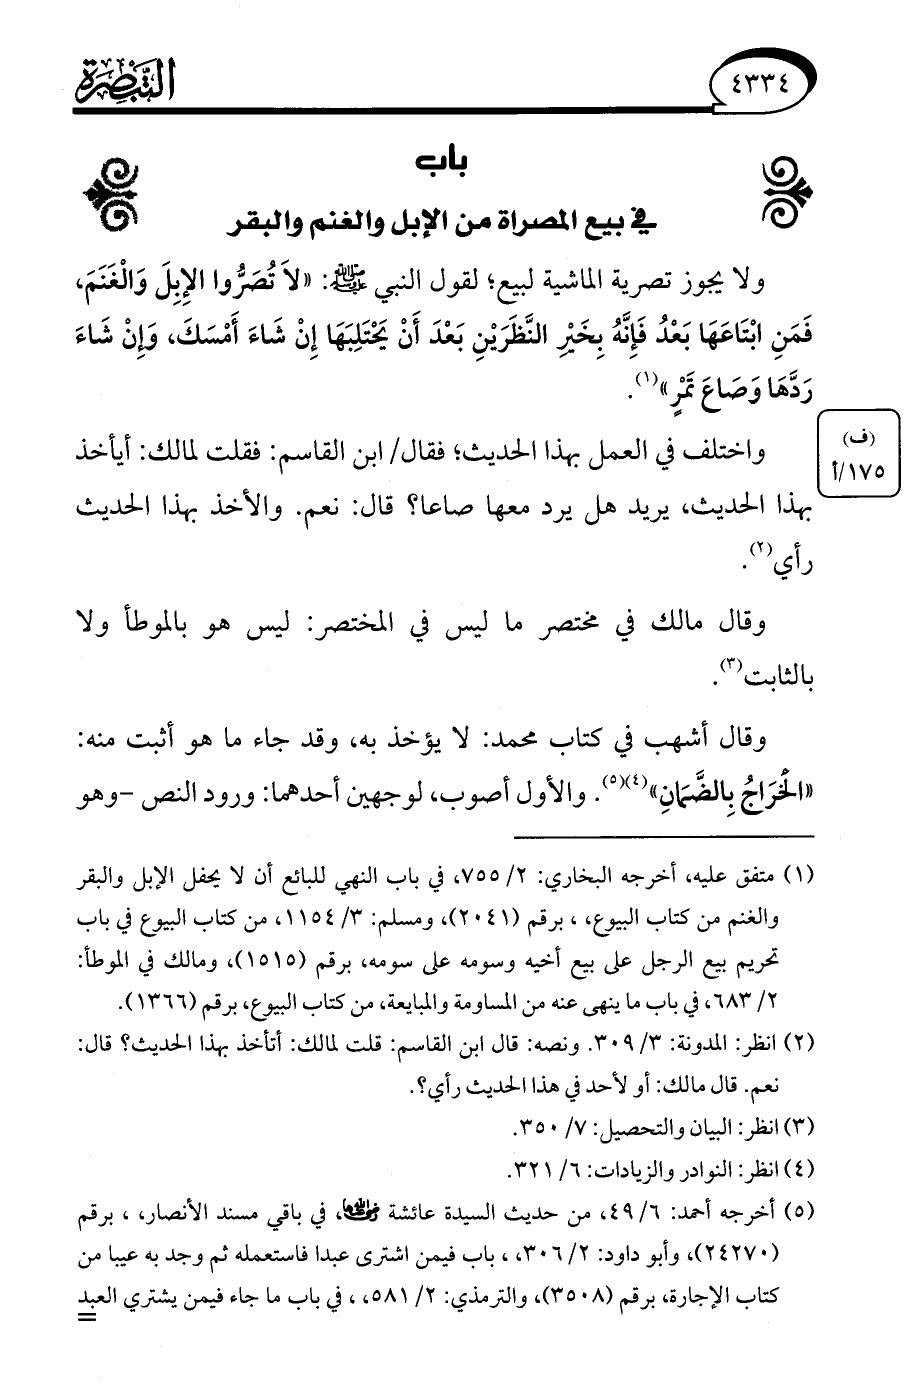 ٤٣٣٤
التبصرة
باب
في بيع المصراة من الإبل والغنم والبقر
ولا يجوز تصرية الماشية لبيع؛ لقول النبي ﷺ: «لاَ تُصَرُّوا الإِبِلَ وَالْغَنَمَ،
فَمَنِ ابْتَاعَهَا بَعْدُ فَإِنَّهُ بِخَيْرِ النَّظَرَيْنِ بَعْدَ أَنْ يَحْتَلِبَهَا إِنْ شَاءَ أَمْسَكَ، وَإِنْ شَاءَ
رَدَّهَا وَصَاعَ تَمْرٍ»(١).
(ف)
١٧٥/أ
واختلف في العمل بهذا الحديث؛ فقال/ ابن القاسم: فقلت لمالك: أيأخذ
بهذا الحديث، يريد هل يرد معها صاعا؟ قال: نعم. والأخذ بهذا الحديث
رأي(٢).
وقال مالك في مختصر ما ليس في المختصر: ليس هو بالموطأ ولا
بالثابت(٣).
وقال أشهب في كتاب محمد: لا يؤخذ به، وقد جاء ما هو أثبت منه:
«الْخَرَاجُ بِالضَّمَانِ»(٤)(٥). والأول أصوب، لوجهين أحدهما: ورود النص -وهو
(١) متفق عليه، أخرجه البخاري: ٢/ ٧٥٥، في باب النهي للبائع أن لا يحفل الإبل والبقر
والغنم من كتاب البيوع، ، برقم (٢٠٤١)، ومسلم: ٣/ ١١٥٤، من كتاب البيوع في باب
تحريم بيع الرجل على بيع أخيه وسومه على سومه، برقم (١٥١٥)، ومالك في الموطأ:
٢/ ٦٨٣، في باب ما ينهى عنه من المساومة والمبايعة، من كتاب البيوع، برقم (١٣٦٦).
(٢) انظر: المدونة: ٣/ ٣٠٩. ونصه: قال ابن القاسم: قلت لمالك: أتأخذ بهذا الحديث؟ قال:
نعم. قال مالك: أو لأحد في هذا الحديث رأي؟.
(٣) انظر: البيان والتحصيل: ٧/ ٣٥٠.
(٤) انظر: النوادر والزيادات: ٦/ ٣٢١.
(٥) أخرجه أحمد: ٦/ ٤٩، من حديث السيدة عائشة ﵂، في باقي مسند الأنصار، ، برقم
(٢٤٢٧٠)، وأبو داود: ٢/ ٣٠٦، ، باب فيمن اشترى عبدا فاستعمله ثم وجد به عيبا من
كتاب الإجارة، برقم (٣٥٠٨)، والترمذي: ٢/ ٥٨١، ، في باب ما جاء فيمن يشتري العبد
=